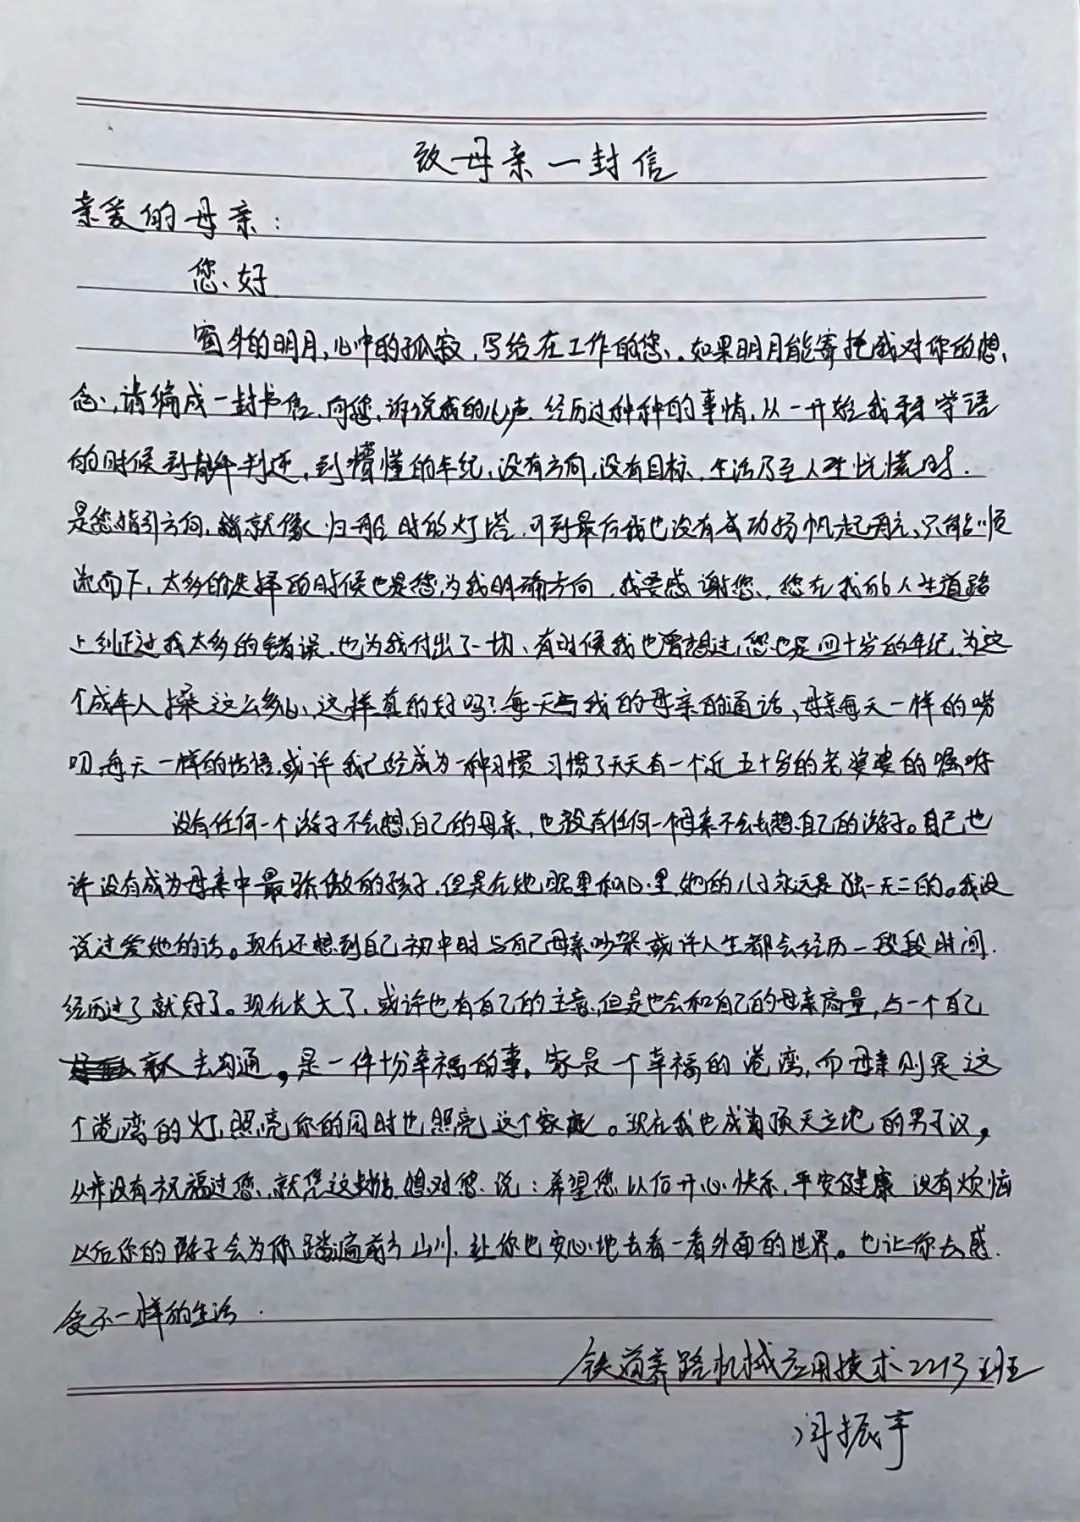 致母亲一封信
亲爱的母亲：
您好
窗外的明月，心中的孤寂，写给在工作的您，如果明月能寄托我对你的想
念，请编成一封书信，向您诉说我的心声，经历过种种的事情，从一开始我牙牙学语
的时候到青年叛逆，到懵懂的年纪，没有方向，没有目标，生活乃至人生恍惚时，
是您指引方向，就像归船时的灯塔，可到最后我也没有成功扬帆起航，只能顺
流而下，太多的选择的时候也是您为我明确方向，我要感谢您，您在我的人生道路
上纠正过我太多的错误，也为我付出了一切，有时候我也曾想过，您也是四十岁的年纪，为这
个成年人操这么多心，这样真的好吗？每天与我的母亲的通话，母亲每天一样的唠
叨，每天一样的话语，或许我已经成为一种习惯，习惯了天天有一个近五十岁的老婆婆的嘱咐
没有任何一个游子不会想自己的母亲，也没有任何一个母亲不会去想自己的游子。自己也
许没有成为母亲中最骄傲的孩子，但是在她眼里和心里，她的儿子永远是独一无二的。我没
说过爱她的话。现在还想到自己初中时与自己母亲吵架，或许人生都会经历一段段时间，
经历过了就好了。现在长大了，或许也有自己的主意，但是也会和自己的母亲商量，与一个自己
亲人去沟通，是一件十分幸福的事，家是一个幸福的港湾，而母亲则是这
个港湾的灯，照亮你的同时也照亮这个家庭。现在我也成为顶天立地的男子汉，
从来没有祝福过您，就凭这封信，想对您说：希望您以后开心快乐，平安健康，没有烦恼
以后你的孩子会为你踏遍前方山川，让你也安心地去看一看外面的世界。也让你去感
受不一样的生活.
铁道养路机械应用技术2213班
闫振宇